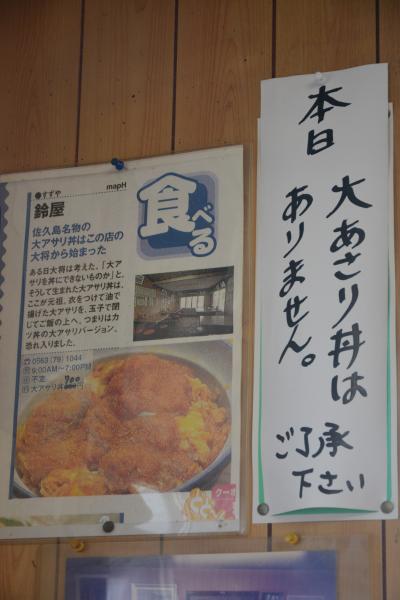 ●すずや
鈴屋
mapH
食べる
佐久島名物の
大アサリ丼はこの店の
大将から始まった
ある日大将は考えた、「大ア
サリを丼にできないものか」と。
そうして生まれた大アサリ丼は、
ここが元祖。衣をつけて油で
揚げた大アサリを、玉子で閉
じてご飯の上へ。つまりはカ
ツ丼の大アサリバージョン。
恐れ入りました。
0563（79）1044
9:00AM〜7:00PM
不定
大アサリ丼
クーポ
本日 大あさり丼は
ありません。
ご了承
下さい